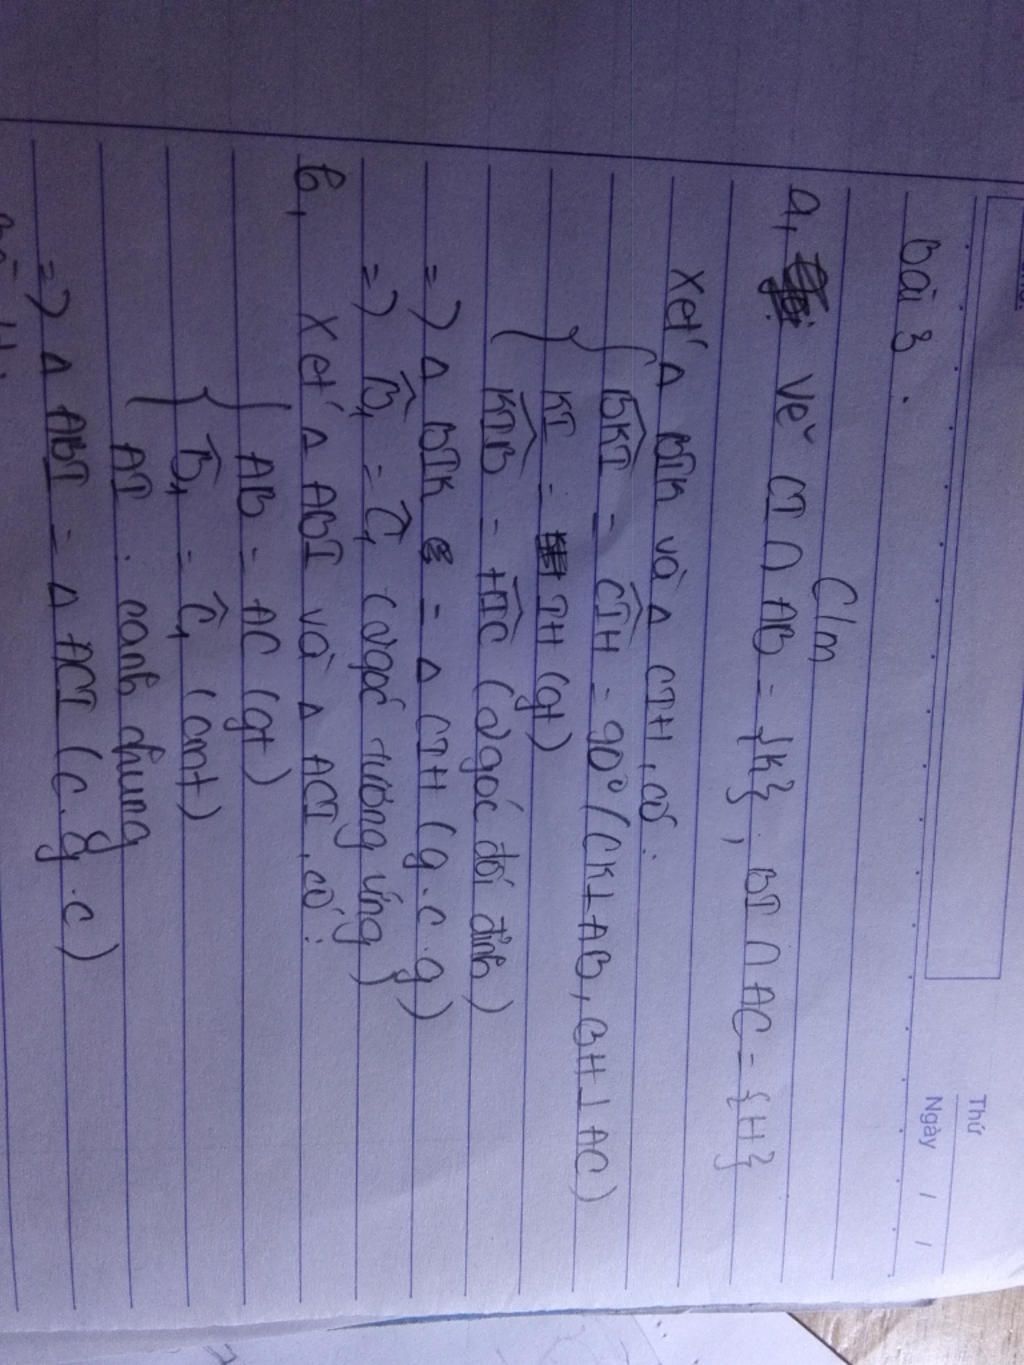 Thứ
Ngày / /
Bài 3.
C/m
a, Vẽ CI ∩ AB = {K}, BI ∩ AC = {H}
Xét Δ BIK và Δ CIH, có:
BKI = CIH = 90° (CK ⊥ AB, BH ⊥ AC)
KI = IH (gt)
KIB = HIC (2 góc đối đỉnh)
=> Δ BIK = Δ CIH (g.c.g)
=> B̂₁ = Ĉ₁ (2 góc tương ứng)
b, Xét Δ ABI và Δ ACI, có:
AB = AC (gt)
B̂₁ = Ĉ₁ (cmt)
AI : cạnh chung
=> Δ ABI = Δ ACI (c.g.c)